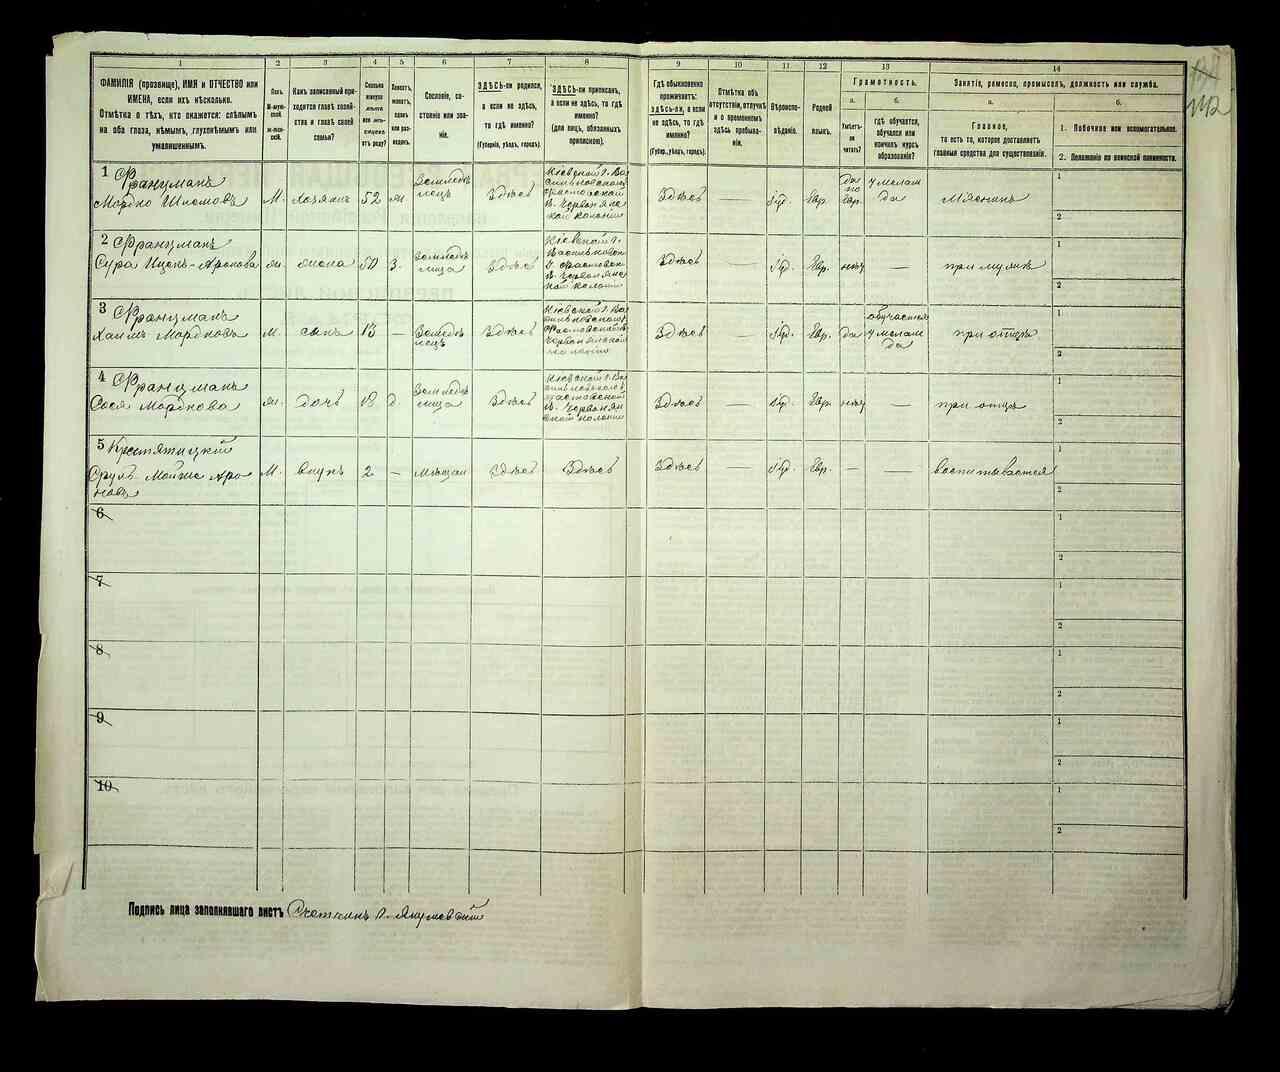 1
2
3
4
5
6
7
8
9
10
11
12
13
14
ФАМИЛІЯ (прозвище), ИМЯ и ОТЧЕСТВО или
ИМЕНА, если ихъ нѣсколько.
Отмѣтка о тѣхъ, кто окажется: слѣпымъ
на оба глаза, нѣмымъ, глухонѣмымъ или
умалишеннымъ.
Полъ
М-муж-
ской.
ж-жен-
скій.
Какъ записанный при-
ходится главѣ хозяй-
ства и главѣ своей
семьи?
Сколько
минуло
лѣтъ
или мѣ-
сяцевъ
отъ роду?
Холостъ,
женатъ,
вдовъ
или раз-
веденъ.
Сословіе, со-
стояніе или зва-
ніе.
ЗДѢСЬ-ли родился,
а если не здѣсь,
то гдѣ именно?
(Губернія, уѣздъ, городъ).
ЗДѢСЬ-ли приписанъ,
а если не здѣсь, то гдѣ
именно?
(для лицъ, обязанныхъ
припиской).
Гдѣ обыкновенно
проживаетъ:
здѣсь-ли, а если
не здѣсь, то гдѣ
именно?
(Губер., уѣздъ, городъ).
Отмѣтка объ
отсутствіи, отлучкѣ
и о временномъ
здѣсь пребыва-
ніи.
Вѣроиспо-
вѣданіе.
Родной
языкъ.
Грамотность.
а.
б.
Умѣетъ-
ли
читать?
гдѣ обучается,
обучался или
кончилъ курсъ
образованія?
Занятіе, ремесло, промыселъ, должность или служба.
а.
б.
Главное,
то есть то, которое доставляетъ
главныя средства для существованія.
1. Побочное или вспомогательное.
2. Положеніе по воинской повинности.
1 Францманъ
Мордко Шлемовъ
М.
Хозяинъ
52
ж.
Земледѣ
лецъ
Здѣсь
Кіевской г. Ва
сильковскому
фастовской
в. Червонянс
кой колоніи
Здѣсь
—
Іуд.
Евр.
да
по
евр.
У мелам
да
Мясникъ
1
2
2 Францманъ
Сура Ицекъ-Аронова
ж.
жена
50
з.
Земледѣ
лица
Здѣсь
Кіевской г.
Васильковск
у. фастовск
в. Червонянс
кой колоніи
Здѣсь
—
Іуд.
Евр.
нѣт
—
при мужѣ
1
2
3 Францманъ
Хаимъ Мордковъ
М.
сынъ
13
—
Земледѣ
лецъ
Здѣсь
Кіевской г. Ва
сильковском
фастовской в.
Червонянской
колоніи
Здѣсь
—
Іуд.
Евр.
да
обучается
У мелам
да
при отцѣ
1
2
4 Францманъ
Сося Мордкова
ж.
дочь
18
д.
Земледѣ
лица
Здѣсь
Кіевской г. Ва
сильковском
фастовской
в. Червонян
ской колоніи
Здѣсь
—
Іуд.
Евр.
нѣт
—
при отцѣ
1
2
5
Сруль Мойше Аро
новъ
М.
Внукъ
2
—
Мѣщан
Здѣсь
Здѣсь
Здѣсь
—
Іуд.
Евр.
—
—
воспитывается
1
2
6
1
2
7
1
2
8
1
2
9
1
2
10
1
2
Подпись лица заполнявшаго листъ Счетчикъ